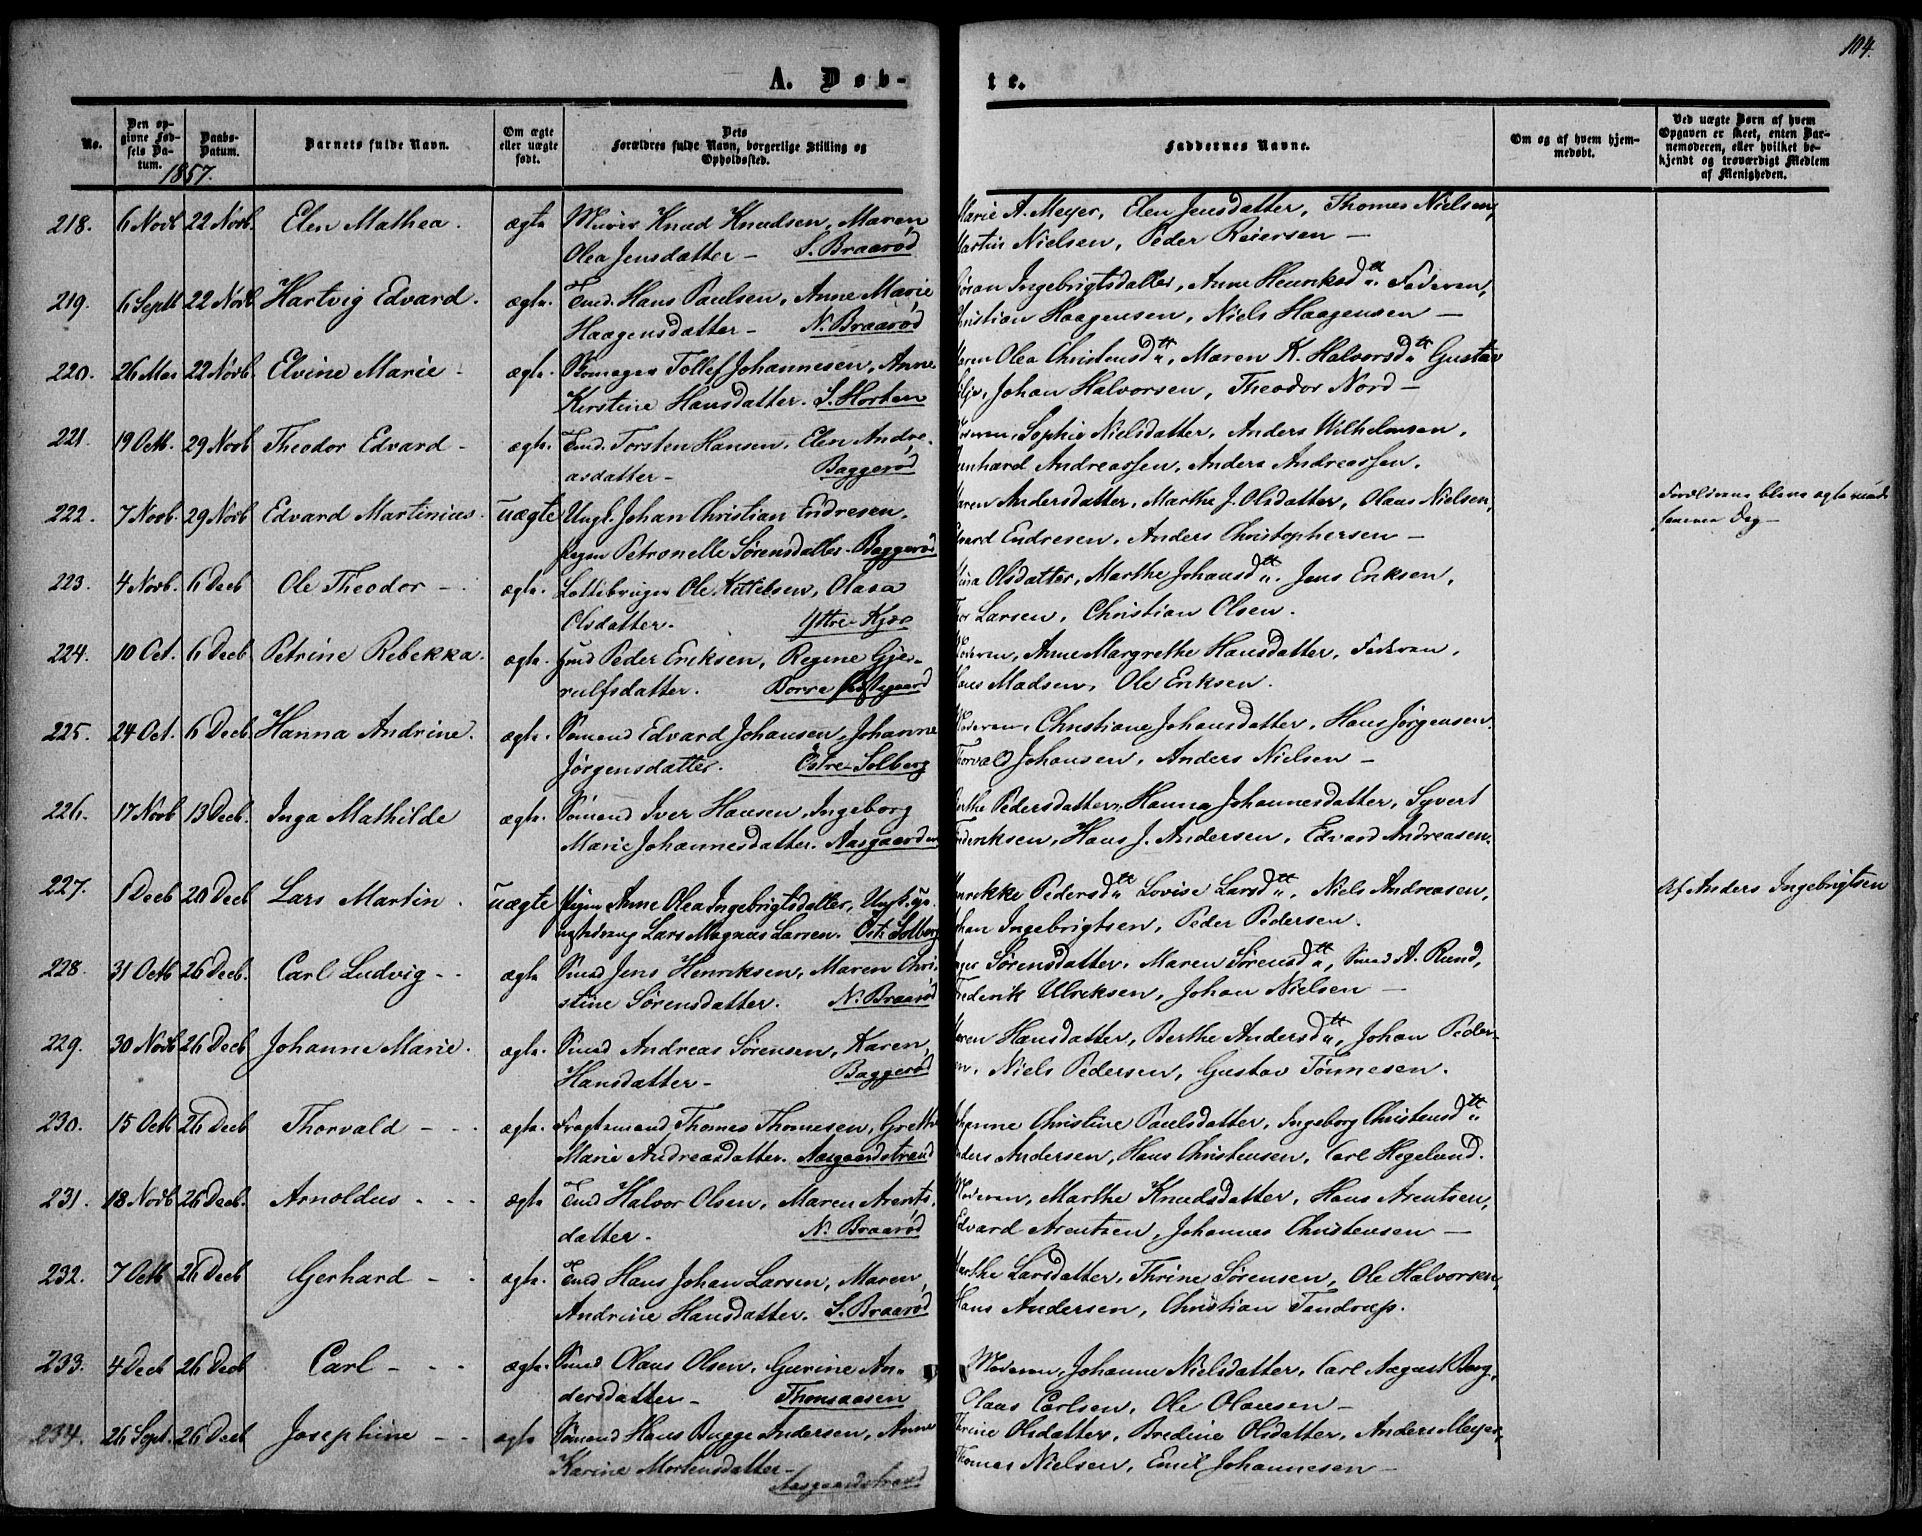 104.
A. Døb-
te.
No.
Den op-
givne Fød-
sels Da-
tum.
Daabs-
Datum.
1857.
Barnets fulde Navn.
Om ægte
eller uægte
født.
Dets
Forældres fulde Navn, borgerlige Stilling og
Opholdssted.
Faddernes Navne.
Om og af hvem hjem-
medøbt.
Ved uægte Børn af hvem
Opgaven er skeet, enten Bar-
nemoderen, eller hvilket be-
kjendt og troværdigt Medlem
af Menigheden.
218. 6 Novb 22 Novb. Elen Mathea. ægte Murer Knud Knudsen, Maren
Olea Jensdatter – S. Braarød
Marie A. Meyer, Elen Jensdatter, Thomas Nielsen,
Martin Nielsen, Peder Reiersen –
219. 6 Septb 22 Novb Hartvig Edvard. ægte. Hans Paulsen, Anne Marie
Haagensdatter – N. Braarød
Ingebrigtsdatter, Anne Henriksdtt. Faderen,
Christian Haagensen, Niels Haagensen –
220. 26 Mai 22 Novb. Elvine Marie – ægte. Tollef Johannesen, Anne
Kirstine Hansdatter. S. Horten
Maren Olea Christensdtt, Maren K. Halvorsdtt Gustav
Johan Halvorsen, Theodor Nord –
221. 19 Octb. 29 Novb Theodor Edvard – ægte. Torsten Hansen, Elen Andre-
asdatter – Baggerød
Sophie Nielsdatter, Anders Wilhelmsen,
Andreassen, Anders Andreassen.
222. 7 Novb. 29 Novb Edvard Martinius. uægte Ungk. Johan Christian Endresen,
Pigen Petronelle Sørensdatter – Baggerød
Maren Andersdatter, Marthe J. Olsdatter, Olaus Nielsen,
Edvard Endresen, Anders Christophersen –
Forældrene bleve ægteviede
samme Dag –
223. 4 Novb. 6 Decb Ole Theodor – ægte. Ole Kittelsen, Olava
Olsdatter. Yttre-Kjær
Olsdatter, Marthe Johansdtt. Jens Eriksen,
Larsen, Christian Olsen.
224. 10 Oct. 6 Decb Petrine Rebekka. ægte. Peder Eriksen, Regine Gje-
rulfsdatter. Borre
Moderen, Anne Margrethe Hansdatter, Faderen,
Hans Madsen, Ole Eriksen.
225. 24 Oct. 6 Decb. Hanna Andrine. ægte. Sømand Edvard Johansen, Johanne
Jørgensdatter. Østre-Solberg
Moderen, Christiane Johansdatter, Hans Jørgensen.
Thorvald Johansen, Anders Nielsen –
226. 17 Novb 13 Decb. Inga Mathilde ægte. Sømand Iver Hansen, Ingeborg
Marie Johannesdatter. Aasgaarden
Pedersdatter, Hanna Johannesdatter, Syvert
Frederiksen, Hans J. Andersen, Edvard Andreasen.
227. 1 Decb 20 Decb Lars Martin. uægte Pigen Anne Olea Ingebrigtsdatter, Ungk.
Lars Magnus Larsen. Øst. Solberg
Pedersdtt Lovise Larsdtt, Niels Andreasen,
Johan Ingebrigtsen, Peder Pedersen.
Af Anders Ingebrigtsen
228. 31 Octb 26 Decb. Carl Ludvig – ægte Smed Jens Henriksen, Maren Chri-
stine Sørensdatter. N. Braarød
Sørensdatter, Maren Sørensdtt, Smed A. Rund,
Frederik Ulriksen, Johan Nielsen –
229. 30 Novb 26 Decb Johanne Marie. ægte. Smed Andreas Sørensen, Karen
Hansdatter – Baggerød
Maren Hansdatter, Berthe Andersdtt, Johan Peder-
sen, Niels Pedersen, Gustav Tønnesen.
230. 15 Octb 26 Decb Thorvald – – ægte. Fragtemand Thomas Thomesen, Grethe
Marie Andreasdatter. Aasgaardstrand
Johanne Christine Paulsdatter, Ingeborg Christensdtt
Anders Andersen, Hans Christensen, Carl Hegelund.
231. 18 Novb 26 Decb. Arnoldus – – – ægte Halvor Olsen, Maren Arents-
datter. N. Braarød
Moderen, Marthe Knudsdatter, Hans Arentsen,
Edvard Arentsen, Johannes Christensen –
232. 7 Octb 26 Decb Gerhard – – ægte. Hans Johan Larsen, Maren
Andrine Hansdatter. S. Braarød
Marthe Larsdatter, Thrine Sørensen, Ole Halvorsen,
Hans Andersen, Christian Tandrup.
233. 4 Decb 26 Decb Carl – – – ægte. Smed Olaus Olsen, Gurine An-
dersdatter – Thonsaasen
Moderen, Johanne Nielsdatter, Carl August Berg,
Olaus Carlsen, Ole Olausen –
234. 26 Sept. 26 Decb Josephine – – ægte Sømand Hans Bugge Andersen, Anne
Karine Mortensdatter – Aasgaardstrand
Thrine Olsdatter, Bredine Olsdatter, Anders Meyer,
Thomas Nielsen, Emil Johannesen –